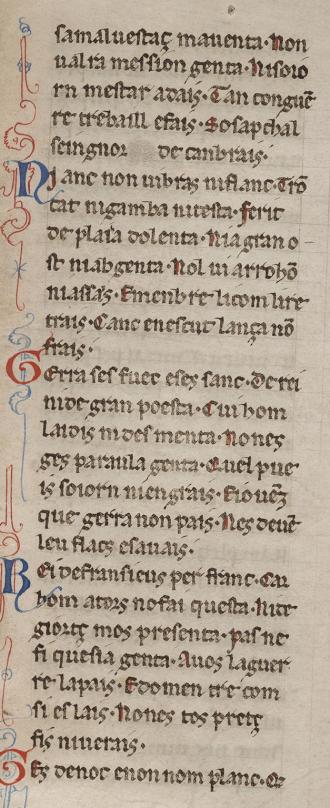 samaluestaç mauenta · Non
ual ra mession genta · Ni soio
rn mestar adais · Tan conguēt
re trebaill efais · So sap chal
seingnor de canbrais ·
Ni anc non uibras ni flanc · Tro
cat ni gamba ni testa · ferit
de plaia dolenta · Ni a gran o
st ni ab genta · Nol ui a rrohō
ni assais · E menbre li com lire
trais · C anc en escut lança nō
frais ·
Gerra ses fuec e ses sanc · De rei
ni de gran poesta · Cui hom
laidis ni desmenta · No nes
ges paraula genta · Quel pue
is soiorn ni engrais · E iouēz
que gerra non pais · Nes deuēt
leu flacs e sauais ·
Rei de fransi cus per franc · Car
hom a torz nofai questa · Ni te
giortç mos presenta · pas ne
fi que sia genta · A uos la guer
re · la pais · E domentre com
si es lais · No nes tos pretç
fis ni uerais ·
Ges den oc e non nom planc · Q